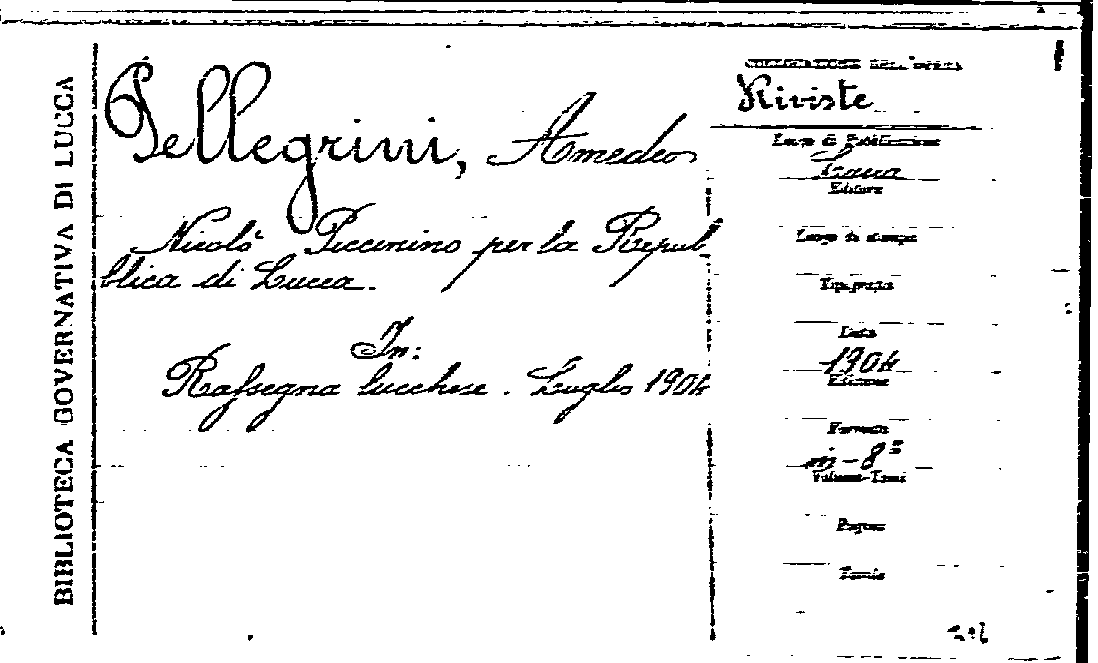 BIBLIOTECA GOVERNATIVA DI LUCCA
Pellegrini, Amedeo
Nicolò Piccinino per la Repub
blica di Lucca.
In:
Rassegna lucchese. Luglio 1904
COLLOCAZIONE DELL'OPERA
Riviste
Luogo di Pubblicazione
Lucca
Editore
Luogo di stampa
Tipografia
Data
1904
Edizione
Formato
in-8°
Volume-Tomi
Pagine